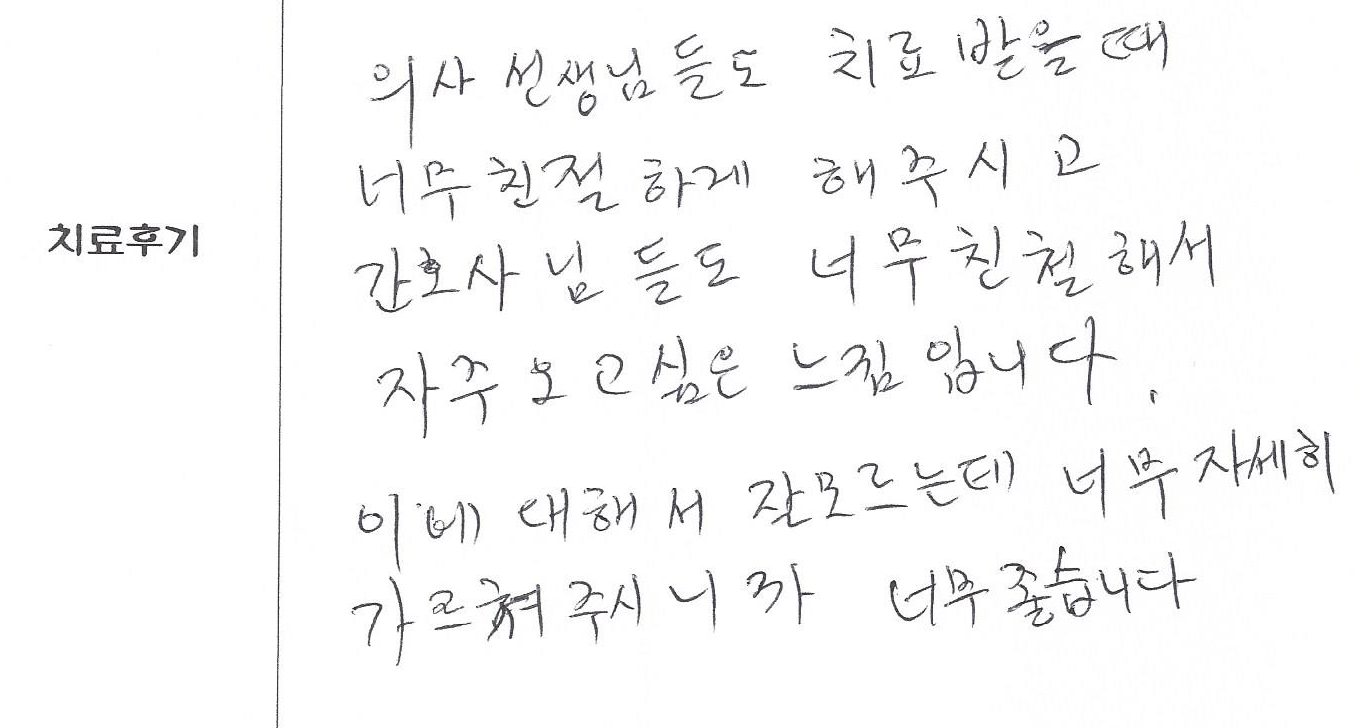 치료후기
의사 선생님들도 치료 받을때
너무 친절 하게 해 주시 고
간호사 님 들도 너무 친철 해서
자주 오고싶은 느낌 입니다.
이에 대해 서 잘모르는데 너무 자세히
가르쳐 주시 니 까 너무 좋습니다